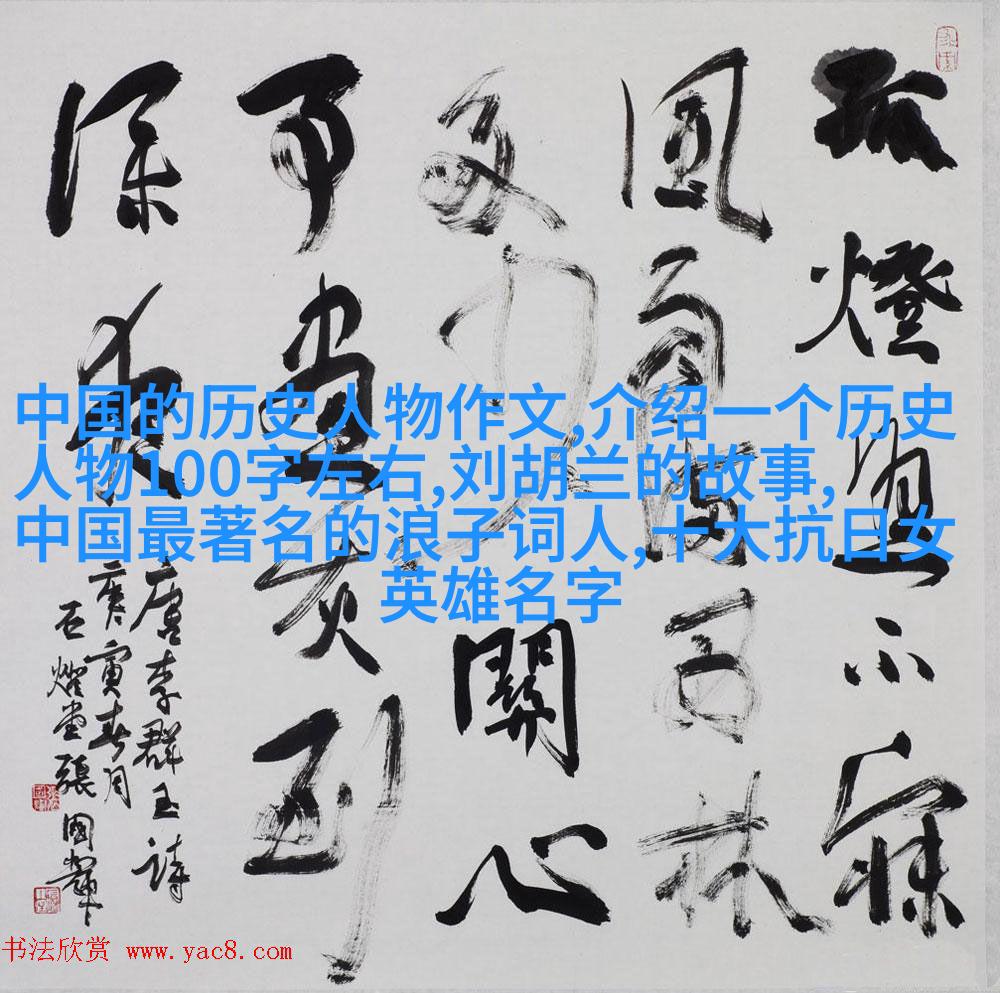 孤燈照不寐
風雨滿西林
多少關心
事畫灰到
深夜
唐李群玉詩
庚寅春月
中国的历史人物作文,介绍一个历史
人物100字左右,刘胡兰的故事,
中国最著名的浪子词人,十大抗日女
英雄名字
书法欣赏 www.yac8.com